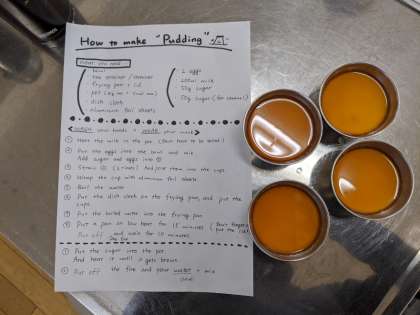 How to make "Pudding"
What you need
bowl
tea strainer / strainer
frying pan + lid
pot (big one + small one)
dish cloth
aluminum foil sheets
2 eggs
200ml milk
50g sugar
50g sugar (for caramel)
your hands + your mask
① Heat the milk in the pot. (Don't have to be boiled)
② Put the eggs into the bowl and mix.
Add sugar and eggs into ①
③ Strain ② (2 times) And pour them into the cups
④ Wrap the cup with aluminum foil sheets
⑤ Boil the water
⑥ Put the dish cloth on the frying pan, and put the cups.
⑦ Put the boiled water into the frying pan
⑧ Put a pan on low heat for 15 minutes (Don't forget to put the lid)
Put off the fire and wait for 10 minutes
① Put the sugar into the pot.
And heat it until it gets brown.
② Put off the fire and pour water + mix